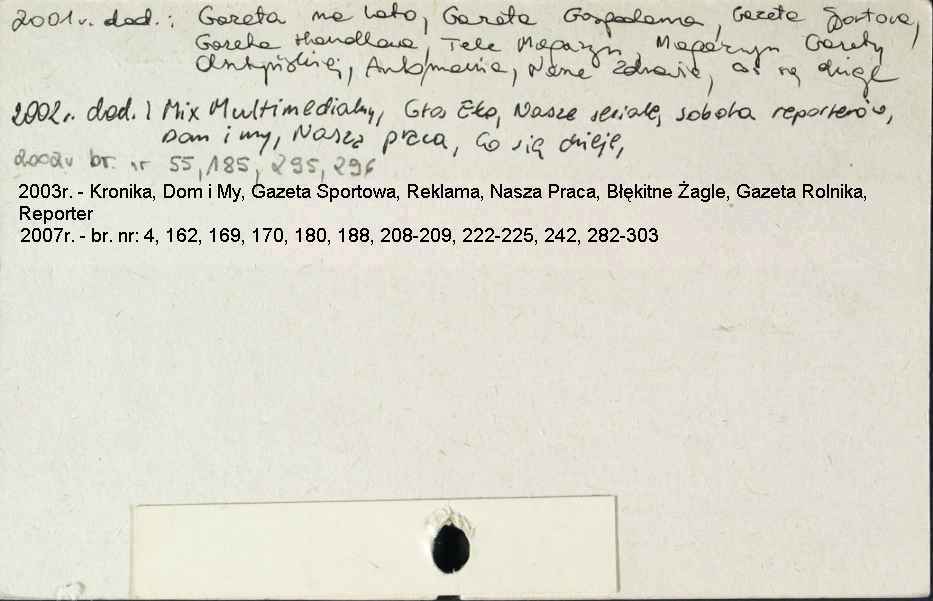 2001r. dod.: Gazeta na Lato, Gazeta Gospodarna, Gazeta Sportowa,
Gazeta Handlowa, Tele Magazyn, Magazyn Gazety
Olsztyńskiej, Automania, Nasze Zdrowie, coś się dzieje
2002r. dod.: Mix Multimedialny, Głos Ełku, Nasze seriale, sobota reporterów,
Dom i my, Nasza praca, Co się dzieje,
2002r br. nr 55, 185, 295, 296
2003r. - Kronika, Dom i My, Gazeta Sportowa, Reklama, Nasza Praca, Błękitne Żagle, Gazeta Rolnika,
Reporter
2007r. - br. nr: 4, 162, 169, 170, 180, 188, 208-209, 222-225, 242, 282-303